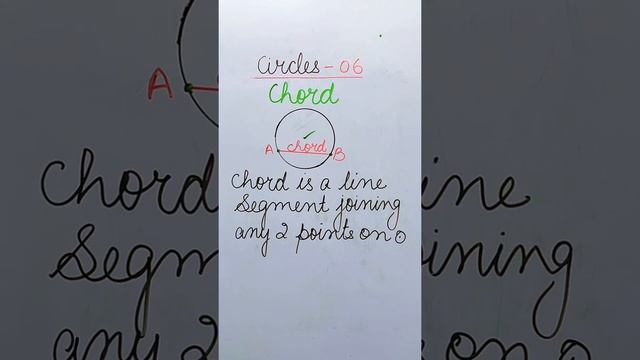 Circles - 06
Chord
chord
A B
Chord is a line
Segment joining
any 2 points on ⊙